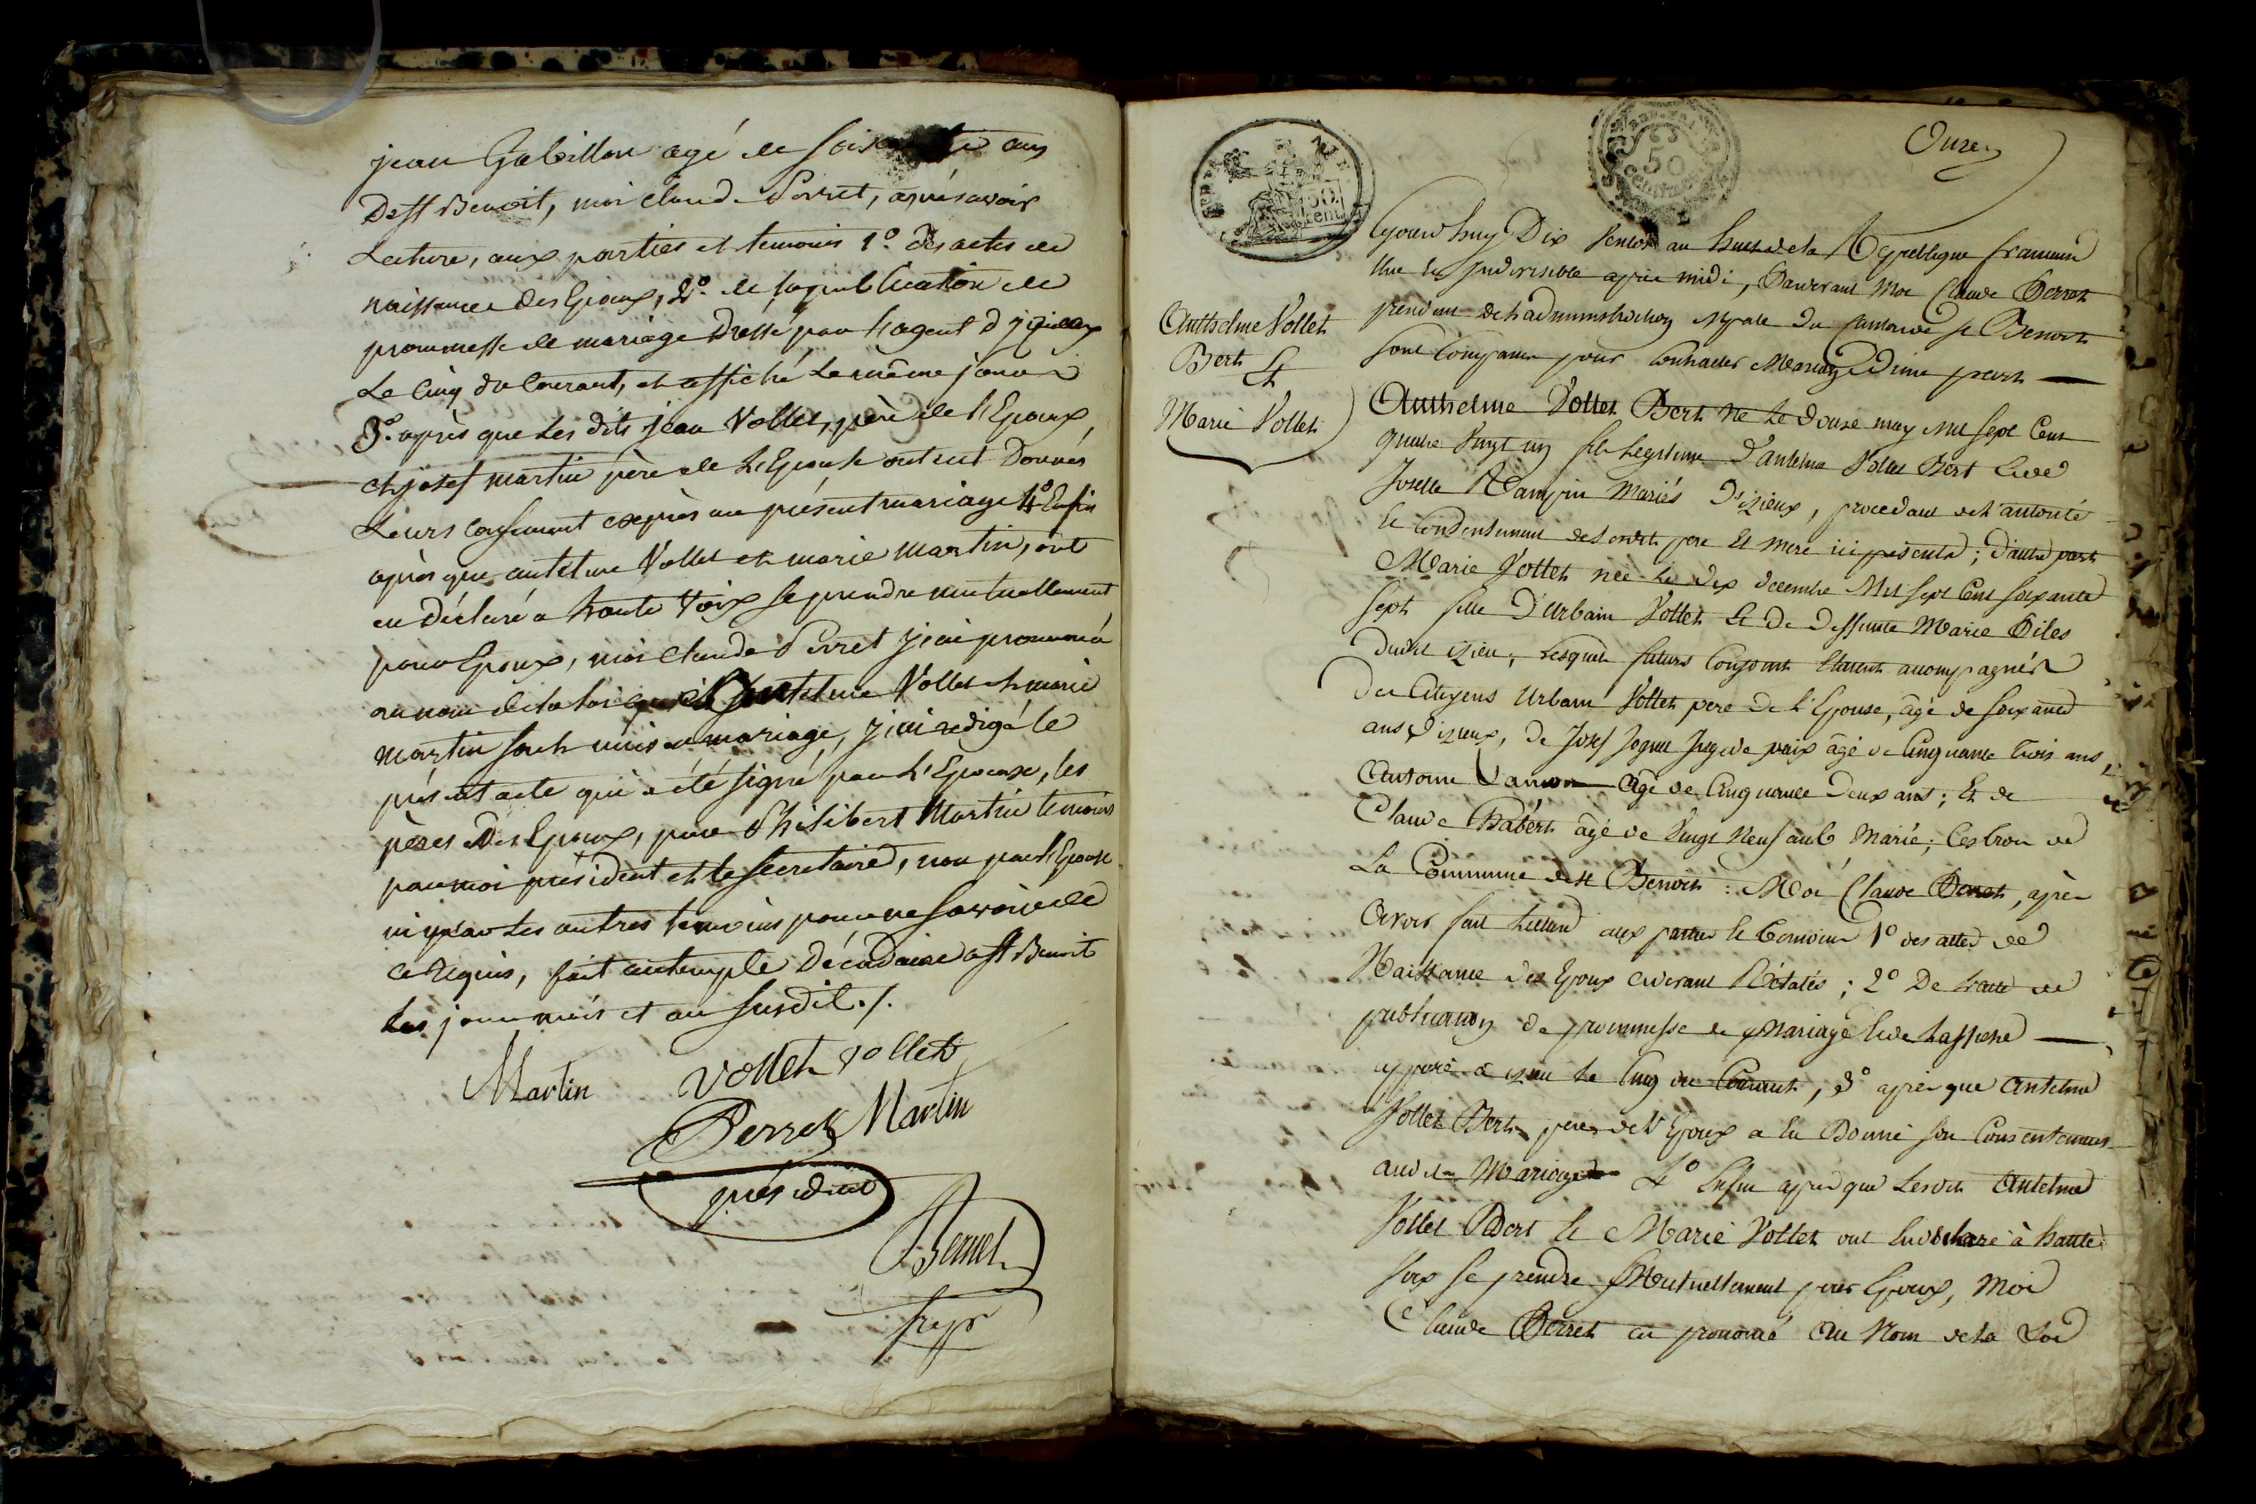 jean Gabillon agé de soixante ans
De St Benoit, moi claude Perret, après avoir
Lecture, aux parties et temoins 1º. des actes de
naissance des Epoux, 2º. de la publication de
prommesse de mariage Dressé par l'agent d'yzieux
Le cinq du Courant, et affiché le même jour
3º. après que les dits jean Vollet, père de l'Epoux,
et josef martin père de l'Epouse ont eut Donnés
Leurs consement exprès au présent mariage 4º Enfin
après que antelme Vollet et marie martin, ont
eu déclaré a haute Voix se prendre mutuellement
pour Epoux, moi claude Perret j'ai prononcé
au nom de la loi que antelme Vollet et marie
martin sont unis en mariage, j'ai redigé le
présent acte qui a été signé par l'Epoux, les
pères des Epoux, par Philibert Martin temoins
par moi président et le secretaire, non par l'Epouse
ni par les autres temoins pour ne savoir de
ce Requis, fait au temple Décadaire a St Benoit
Les jour mois et an susdit ./.
Martin Vollet Vollet
Perret Martin
président
Bernet
Onze
50
centimes
50
cent
Anthelme Vollet
Bert Et
Marie Vollet
Ajourd'huy Dix Ventos an huit de la Republique francaise
Une et Indivisible après midi, Pardevant Moi Claude Perret
president de l'administration Mpale du Canton de St Benoit
sont comparu pour Contracter Mariage D'une part
Anthelme Vollet Bert né le Douze may mil sept Cent
quatre Vingt un fils legitime d'Antelme Vollet Bert et de
Josette Rampin Mariés D'izieux, procedant de l'autorité
Et Consentement desdits pere Et mere ici présents; D'autre part
Marie Vollet née le dix decembre Mil sept Cent soixante
sept fille D'Urbain Vollet Et De Deffunte Marie Piles
Dudit izieu; lesquels futurs Conjoints Etaient accompagnés
Des Citoyens Urbain Vollet pere De l'Epouse, âgé de soixante
ans D'izieux, de Josef Jug de paix âgé de Cinquante trois ans,
Antoine agé de Cinquante Deux ans; Et de
Claude Habert âgé de Vingt Neuf ans Marié; Ces trois de
La Commune de St Benoit: Moi Claude Perret, après
Avoir fait lecture aux parties Et temoins 1º des actes de
Naissance des Epoux cidevant Rélatés; 2º De l'acte de
publication de prommesse de Mariage Et de l'affiche
apposé à izieu le Cinq du Courant, 3º après que Antelme
Vollet Bert pere de l'Epoux a Eu Donné son Consentement
audit Mariage 4º Enfin après que lesdits Antelme
Vollet Bert Et Marie Vollet ont Eu déclaré à haute
Voix se prendre Mutuellement pour Epoux, Moi
Claude Perret ai prononcé Au Nom de la Loi